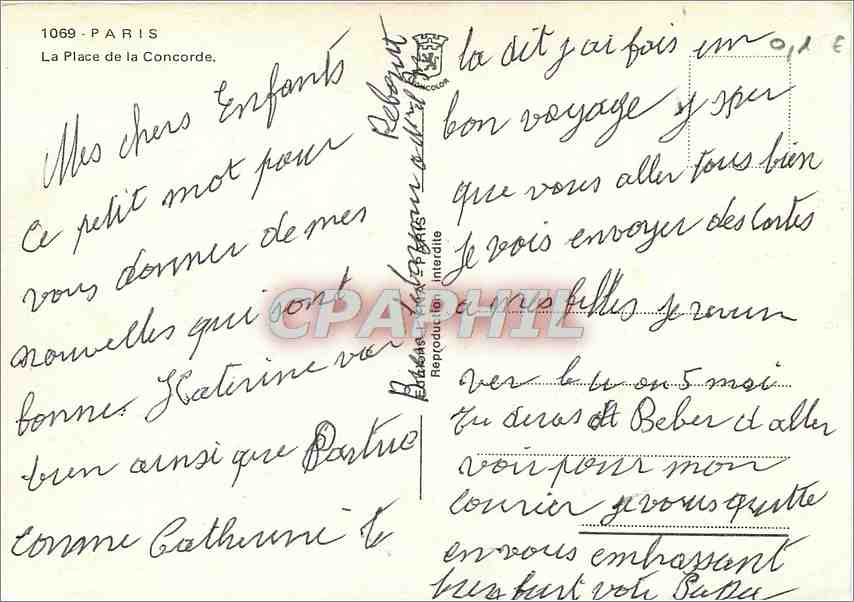 1069 - PARIS
La Place de la Concorde.
Mes chers Enfants
ce petit mot pour
vous donner de mes
nouvelles qui sont
bonne. Katerine va
bien ainsi que
comme Catherine te
la dit j ai fais un
bon voyage j sper
que vous aller tous bien
Je vois envoyer des Cartes
a mes filles je
ver le 4 ou 5 mai
Tu deras Beber d aller
voir pour mon
courier je vous quitte
en vous embrassant
bien fort votr
EDITIONS PARIS
Reproduction interdite
0,1 €
CPAPHIL